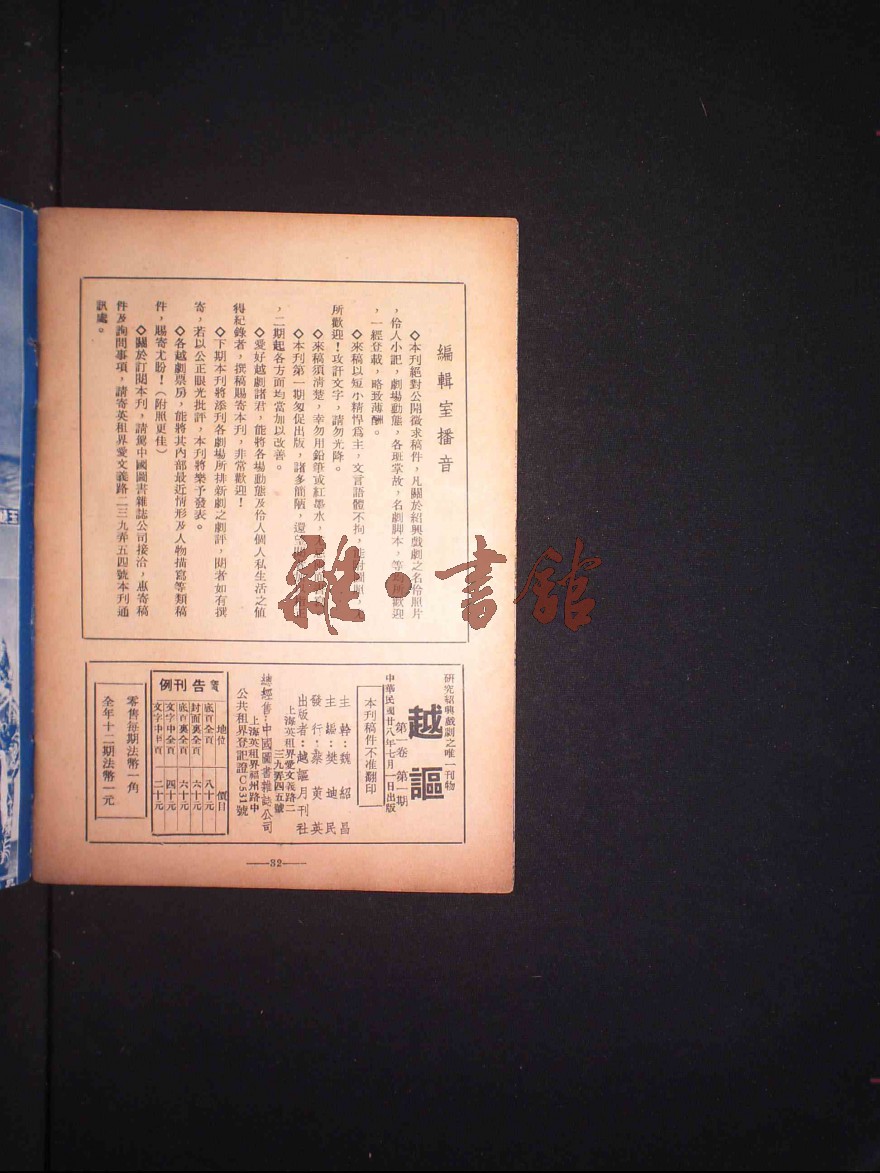 編輯室播音
◇本刊絕對公開徵求稿件，凡關於紹興戲劇之名伶照片
，伶人小記，劇場動態，各班掌故，名劇脚本，等
所歡迎
，一經登載，略致薄酬。
◇來稿以短小精悍爲主，文言語體不拘，
所歡迎！攻訐文字，請勿光降。
◇來稿須清楚，幸勿用鉛筆或紅墨水，
◇本刊第一期匆促出版，諸多簡陋，還
，二期起各方面均當加以改善。
◇愛好越劇諸君，能將各場動態及伶人個人私生活之値
得紀錄者，撰稿賜寄本刊，非常歡迎！
◇下期本刊將添刊各劇場所排新劇之劇評，閱者如有撰
寄，若以公正眼光批評，本刊將樂予發表。
◇各越劇票房，能將其內部最近情形及人物描寫等類稿
件，賜寄尤盼！（附照更佳）
◇關於訂閱本刊，請駕中國圖書雜誌公司接洽，惠寄稿
件及詢問事項，請寄英租界愛文義路二三九弄五四號本刊通
訊處。
研究紹興戲劇之唯一刊物
越謳
第一卷 第一期
中華民國廿八年七月一日出版
本刊稿件不准翻印
主幹：魏紹昌
主編：樊迪民
發行：蔡萸英
出版者：越謳月刊社
上海英租界愛文義路二
三九弄四五號
總經售：中國圖書雜誌公司
上海英租界福州路中
公共租界登記證C531號
廣告刊例
地位 價目
底頁全頁 八十元
封面裏全頁 六十元
底頁裏全頁 六十元
文字中全頁 四十元
文字中半頁 二十元
零售每期法幣一角
全年十二期法幣一元
—32—
雜·書館